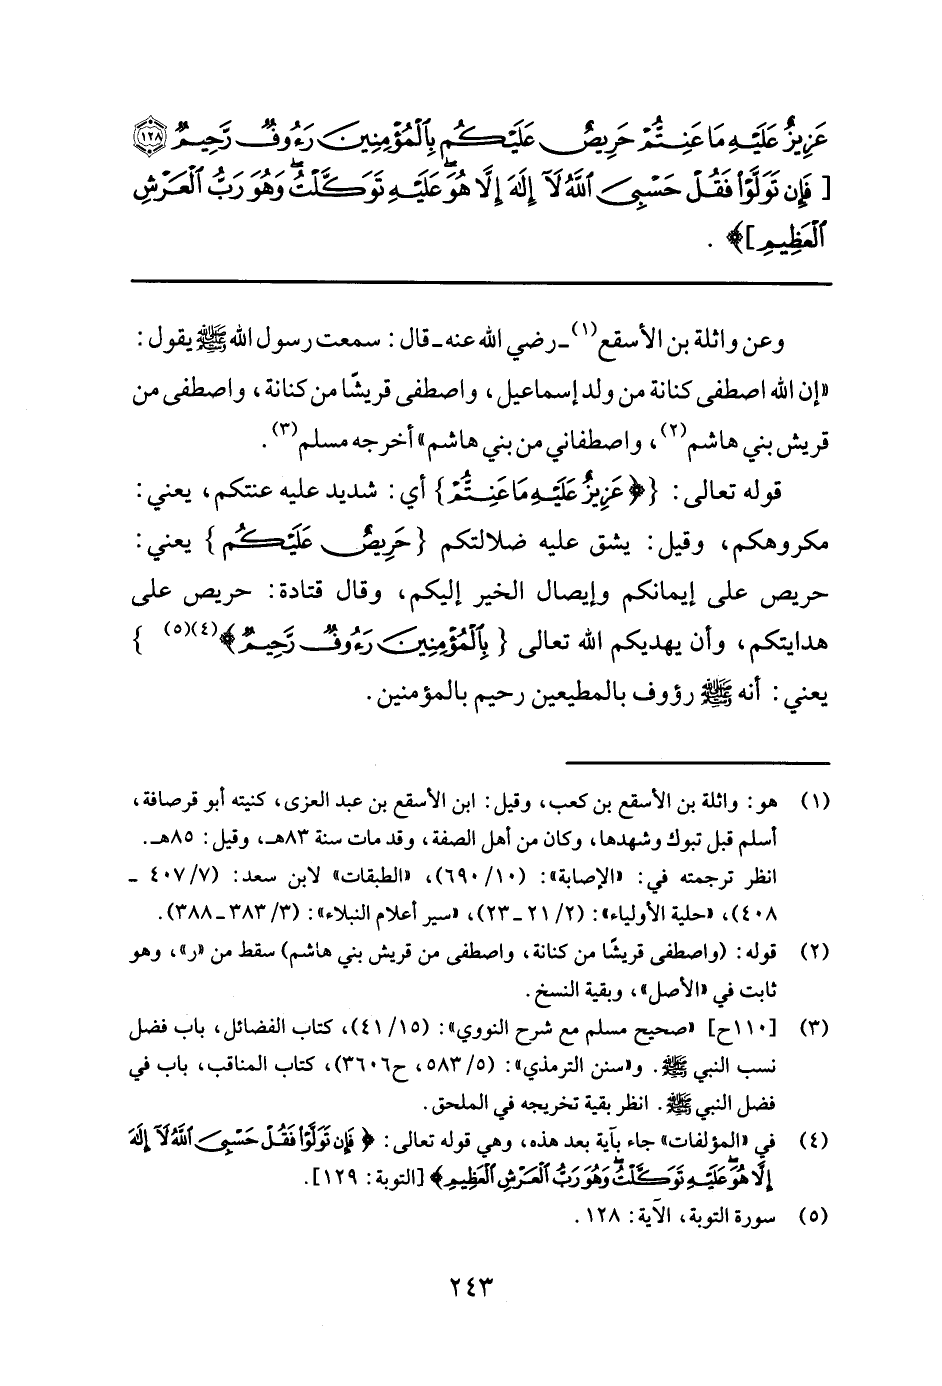 عَزِيزٌ عَلَيْهِ مَا عَنِتُّمْ حَرِيصٌ عَلَيْكُم بِالْمُؤْمِنِينَ رَءُوفٌ رَّحِيمٌ ﴿١٢٨﴾
[ فَإِن تَوَلَّوْا فَقُلْ حَسْبِيَ اللَّهُ لَا إِلَٰهَ إِلَّا هُوَ عَلَيْهِ تَوَكَّلْتُ وَهُوَ رَبُّ الْعَرْشِ
الْعَظِيمِ ]﴾ .
وعن واثلة بن الأسقع(١) ـ رضي الله عنه ـ قال : سمعت رسول الله ﷺ يقول :
«إن الله اصطفى كنانة من ولد إسماعيل، واصطفى قريشًا من كنانة، واصطفى من
قريش بني هاشم(٢)، واصطفاني من بني هاشم» أخرجه مسلم(٣).
قوله تعالى : {﴿ عَزِيزٌ عَلَيْهِ مَا عَنِتُّمْ} أي : شديد عليه عنتكم، يعني :
مكروهكم، وقيل : يشق عليه ضلالتكم {حَرِيصٌ عَلَيْكُم } يعني :
حريص على إيمانكم وإيصال الخير إليكم، وقال قتادة : حريص على
هدايتكم، وأن يهديكم الله تعالى { بِالْمُؤْمِنِينَ رَءُوفٌ رَّحِيمٌ﴾(٤)(٥) }
يعني : أنه ﷺ رؤوف بالمطيعين رحيم بالمؤمنين.
(١) هو : واثلة بن الأسقع بن كعب، وقيل : ابن الأسقع بن عبد العزى، كنيته أبو قرصافة،
أسلم قبل تبوك وشهدها، وكان من أهل الصفة، وقد مات سنة ٨٣هـ، وقيل : ٨٥هـ.
انظر ترجمته في : «الإصابة» : (١٠/ ٦٩٠)، «الطبقات» لابن سعد : (٧/ ٤٠٧ ـ
٤٠٨)، «حلية الأولياء» : (٢/ ٢١ ـ٢٣)، «سير أعلام النبلاء» : (٣/ ٣٨٣ ـ٣٨٨).
(٢) قوله : (واصطفى قريشًا من كنانة، واصطفى من قريش بني هاشم) سقط من «ر»، وهو
ثابت في «الأصل»، وبقية النسخ.
(٣) [١١٠ح] «صحيح مسلم مع شرح النووي» : (١٥/ ٤١)، كتاب الفضائل، باب فضل
نسب النبي ﷺ. و«سنن الترمذي» : (٥/ ٥٨٣، ح٣٦٠٦)، كتاب المناقب، باب في
فضل النبي ﷺ. انظر بقية تخريجه في الملحق.
(٤) في «المؤلفات» جاء بآية بعد هذه، وهي قوله تعالى : ﴿ فَإِن تَوَلَّوْا فَقُلْ حَسْبِيَ اللَّهُ لَا إِلَٰهَ
إِلَّا هُوَ عَلَيْهِ تَوَكَّلْتُ وَهُوَ رَبُّ الْعَرْشِ الْعَظِيمِ﴾ [التوبة : ١٢٩].
(٥) سورة التوبة، الآية : ١٢٨ .
٢٤٣